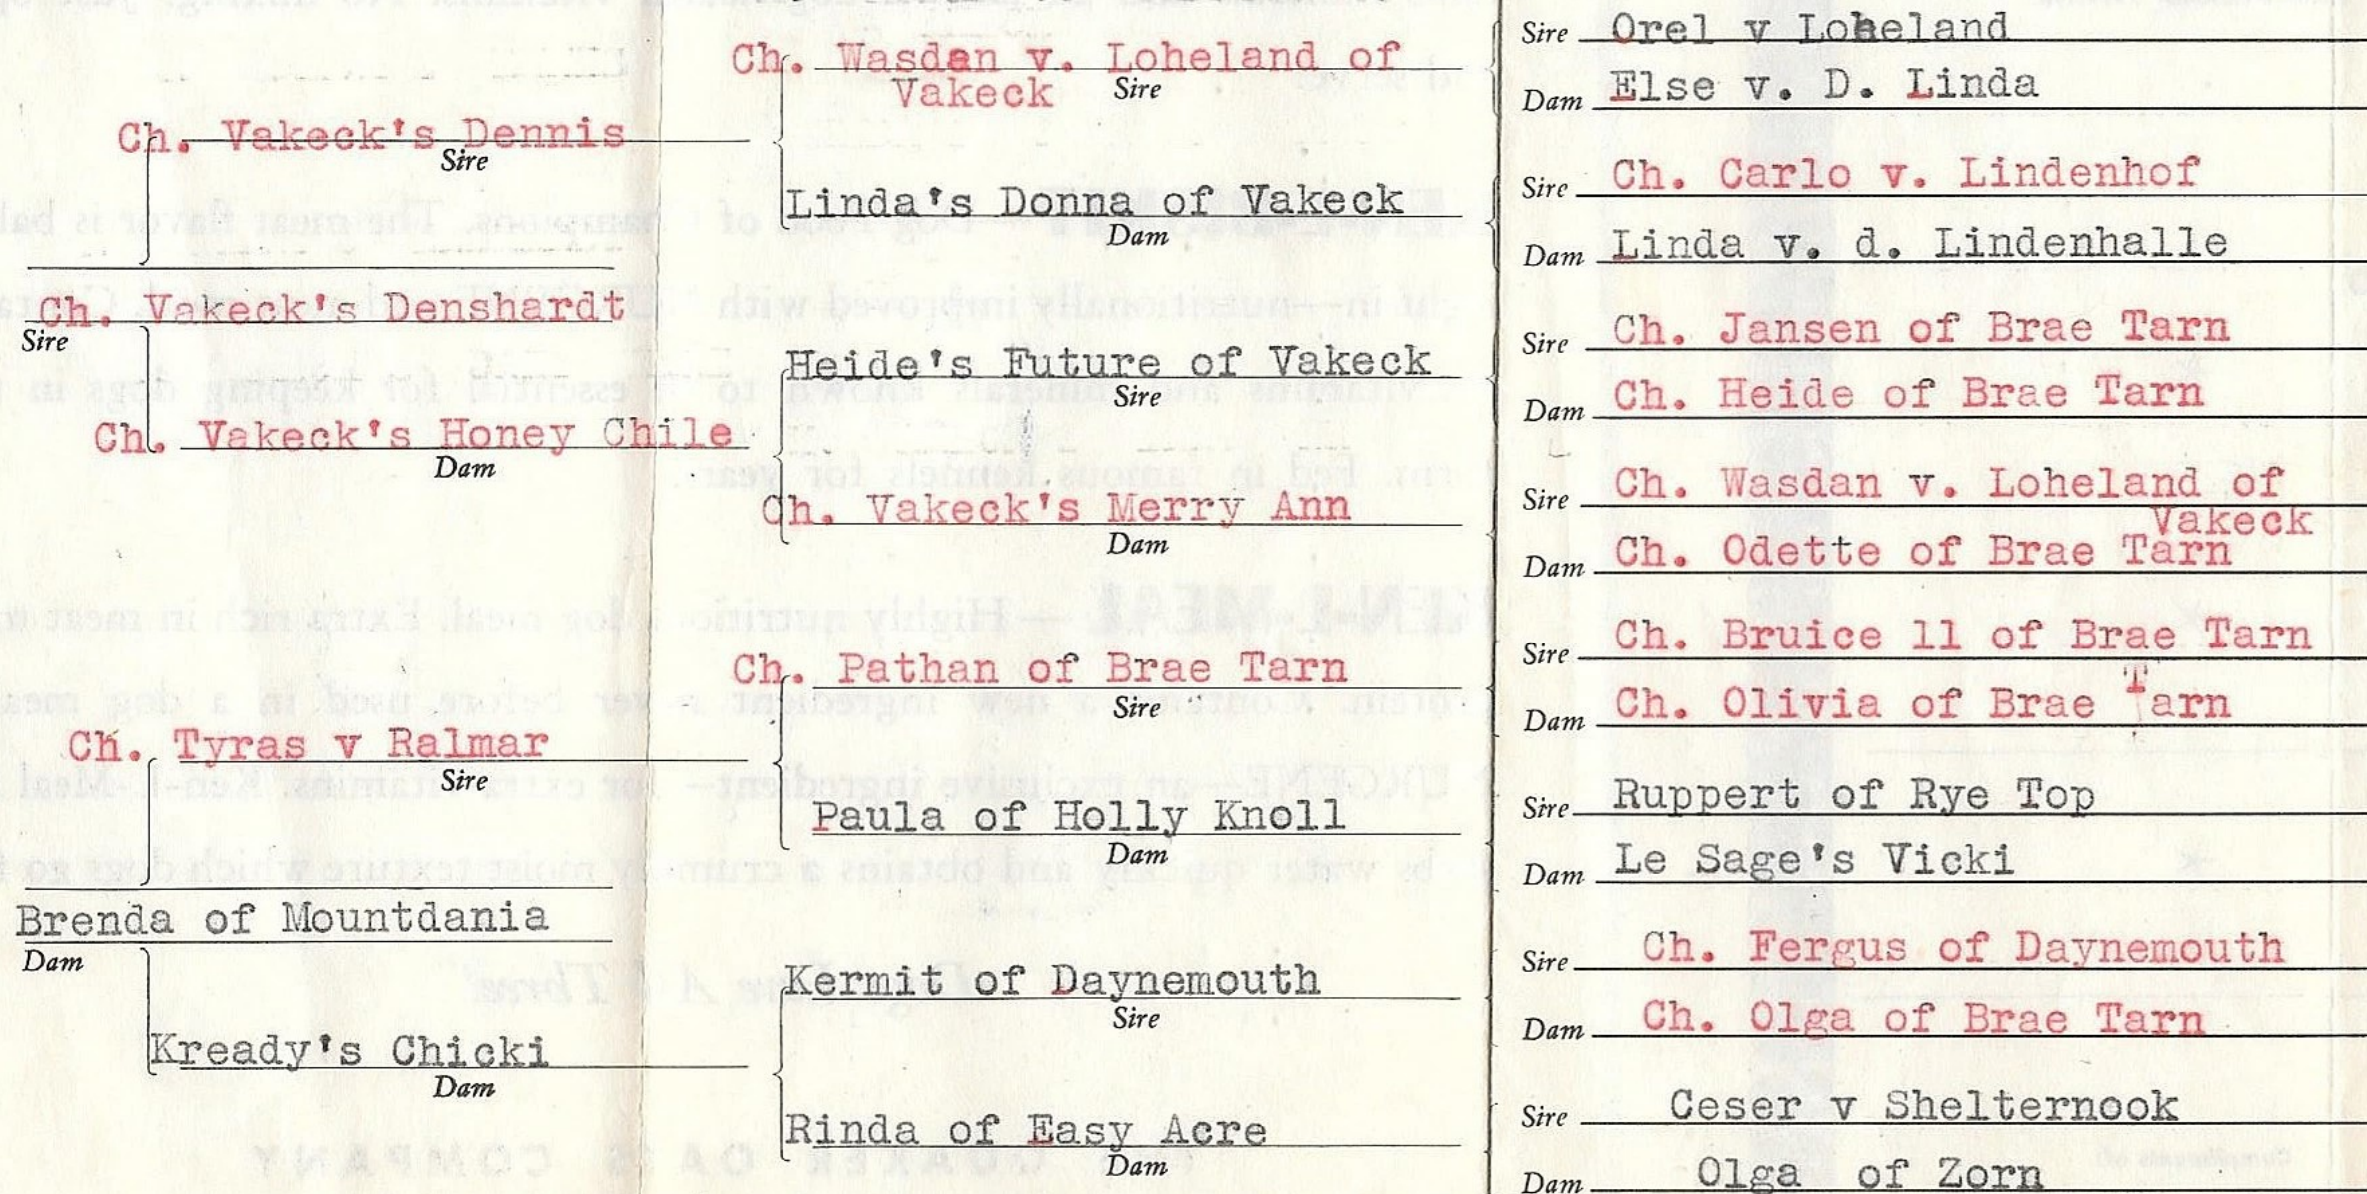 Ch. Vakeck's Dennis
Sire
Ch. Vakeck's Denshardt
Sire
Ch. Vakeck's Honey Chile
Dam
Ch. Tyras v Ralmar
Sire
Brenda of Mountdania
Dam
Kready's Chicki
Dam
Ch. Wasdan v. Loheland of
Vakeck Sire
Linda's Donna of Vakeck
Dam
Heide's Future of Vakeck
Sire
Ch. Vakeck's Merry Ann
Dam
Ch. Pathan of Brae Tarn
Sire
Paula of Holly Knoll
Dam
Kermit of Daynemouth
Sire
Rinda of Easy Acre
Dam
Sire Orel v Loheland
Dam Else v. D. Linda
Sire Ch. Carlo v. Lindenhof
Dam Linda v. d. Lindenhalle
Sire Ch. Jansen of Brae Tarn
Dam Ch. Heide of Brae Tarn
Sire Ch. Wasdan v. Loheland of
Vakeck
Dam Ch. Odette of Brae Tarn
Sire Ch. Bruice 11 of Brae Tarn
Dam Ch. Olivia of Brae Tarn
Sire Ruppert of Rye Top
Dam Le Sage's Vicki
Sire Ch. Fergus of Daynemouth
Dam Ch. Olga of Brae Tarn
Sire Ceser v Shelternook
Dam Olga of Zorn